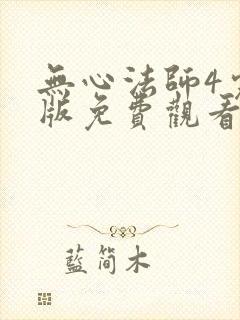 無心法師4
版免費觀看
藍簡木